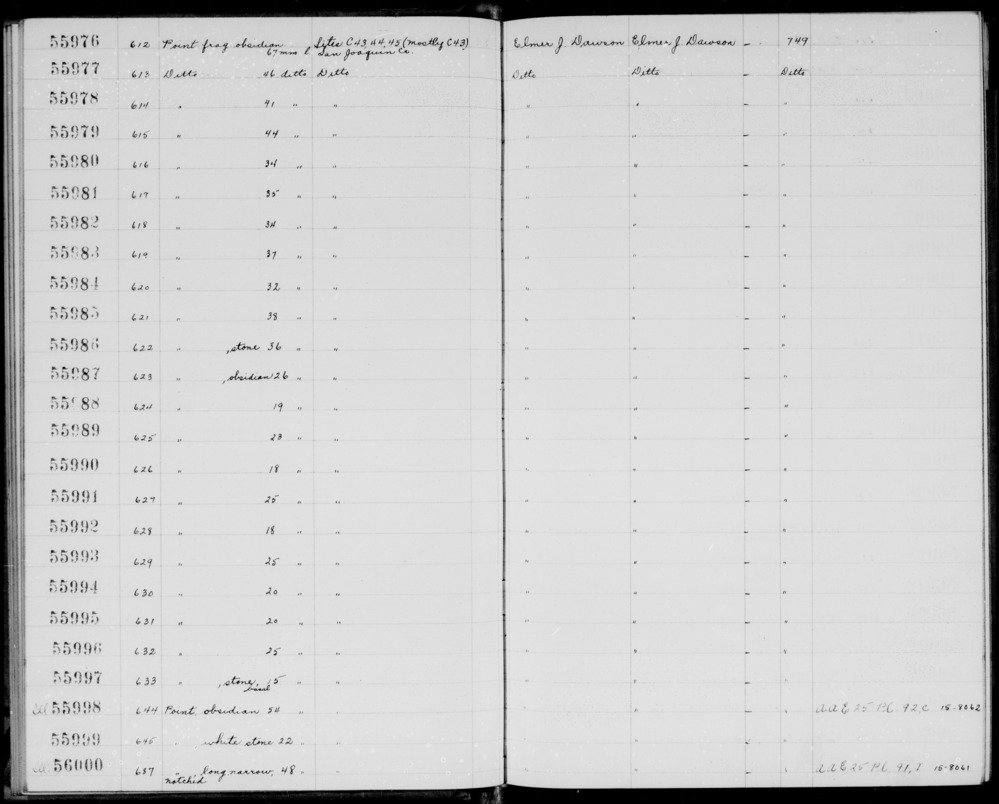 55976 612 Point frag obsidian 67 mm l Sites C43, 44, 45 (mostly C43) San Joaquin Co. Elmer J. Dawson Elmer J. Dawson — 749
55977 613 Ditto 46 ditto Ditto Ditto Ditto — Ditto
55978 614 " 41 " " " " — "
55979 615 " 44 " " " " — "
55980 616 " 34 " " " " — "
55981 617 " 35 " " " " — "
55982 618 " 34 " " " " — "
55983 619 " 37 " " " " — "
55984 620 " 32 " " " " — "
55985 621 " 38 " " " " — "
55986 622 " , stone 36 " " " " — "
55987 623 " , obsidian 26 " " " " — "
55988 624 " 19 " " " " — "
55989 625 " 23 " " " " — "
55990 626 " 18 " " " " — "
55991 627 " 25 " " " " — "
55992 628 " 18 " " " " — "
55993 629 " 25 " " " " — "
55994 630 " 20 " " " " — "
55995 631 " 20 " " " " — "
55996 632 " 25 " " " " — "
55997 633 " , stone, basal 15 " " " " — "
55998 644 Point, obsidian 54 " " " " — " AAE 25 Pl. 92, c 15-8062
55999 645 " white stone 22 " " " " — "
56000 687 " , long narrow, notched 48 " " " " — " AAE 25 Pl. 15-8061